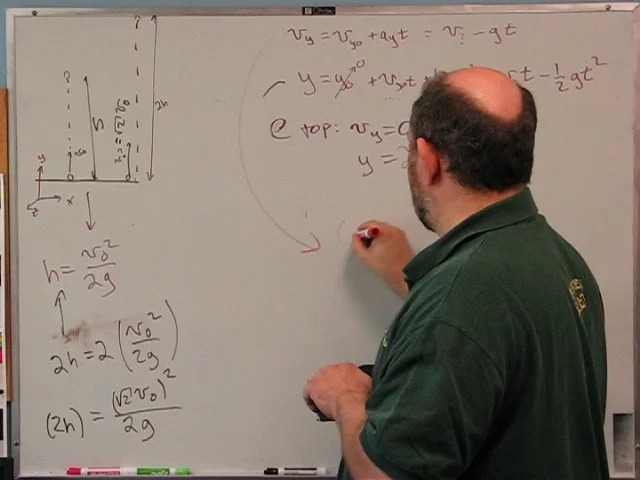 v_y = v_y0 + a_y t = v_i - gt
y = y_0 0 + v_y0 t + t - 1/2 gt²
@ top: v_y = 0
y = 2
h
2h
v_0
v_i = √2 v_0
y
x
z
h = v_0²/2g
2h = 2 (v_0²/2g)
(2h) = (√2 v_0)²/2g
(